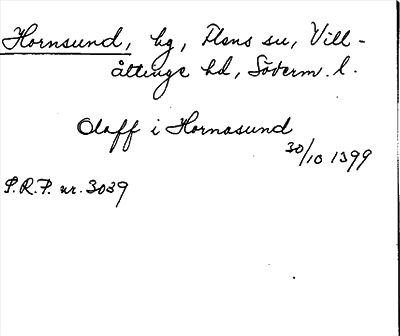 Hornsund, hg, Flens sn, Vill-
åttinge hd, Söderm. l.
Olaff i Hornasund
30/10 1399
S.R.P. nr. 3039